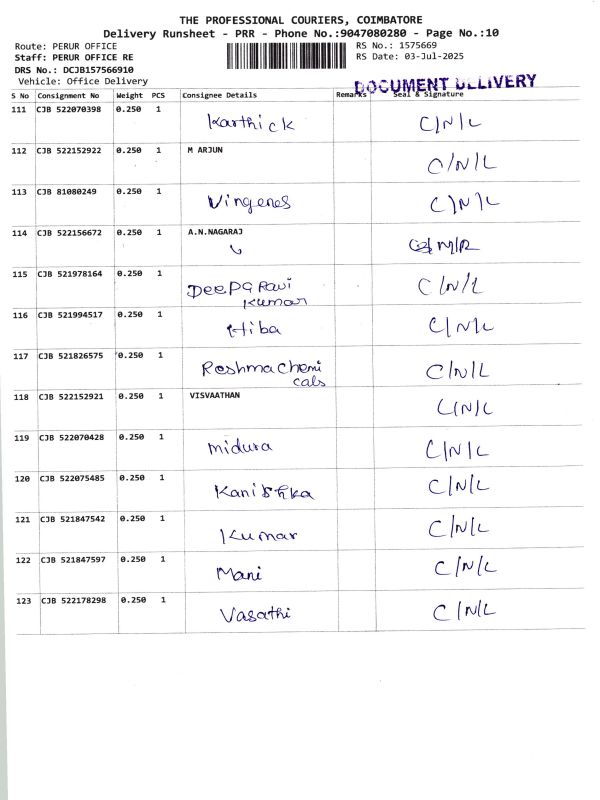 THE PROFESSIONAL COURIERS, COIMBATORE
Delivery Runsheet - PRR - Phone No.:9047080280 - Page No.:10
Route: PERUR OFFICE
RS No.: 1575669
Staff: PERUR OFFICE RE
RS Date: 03-Jul-2025
DRS No.: DCJB157566910
Vehicle: Office Delivery
DOCUMENT DELIVERY
S No Consignment No Weight PCS Consignee Details Remarks Seal & Signature
111 CJB 522070398 0.250 1 Karthick C/N/L
112 CJB 522152922 0.250 1 M ARJUN C/N/L
113 CJB 81080249 0.250 1 Vingenes C/N/L
114 CJB 522156672 0.250 1 A.N.NAGARAJ
115 CJB 521978164 0.250 1 Deepa Ravi C/N/L
Kumar
116 CJB 521994517 0.250 1 Hiba C/N/L
117 CJB 521826575 0.250 1 Reshma Chemi C/N/L
cals
118 CJB 522152921 0.250 1 VISVAATHAN C/N/L
119 CJB 522070428 0.250 1 midura C/N/L
120 CJB 522075485 0.250 1 Kanishka C/N/L
121 CJB 521847542 0.250 1 Kumar C/N/L
122 CJB 521847597 0.250 1 Mani C/N/L
123 CJB 522178298 0.250 1 Vasathi C/N/L